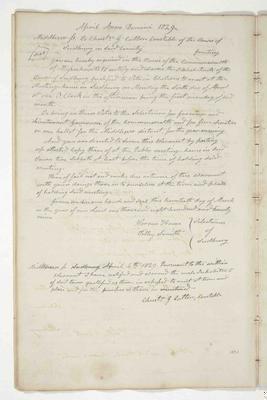 April Anno Domini 1829.
Middlesex ss. To Christr. G. Cutler Constable of the Town of
Sudbury in said County Greeting
you are hereby required in the name of the Commonwealth
of Massachusetts to notify and warn the Inhabitants of the
Town of Sudbury qualified to vote in Elections to meet at the
Meeting house in Sudbury on Monday the sixth day of April
at one O. Clock in the afternoon being the first monday of said
month
To bring in their votes to the Selectmen for Governor and
Lieutenant Governor of the Commonwealth and for five Senators
on one ballot for the Middlesex district for the year ensuing
And you are directed to serve this Warrant by posting
up attested copy thereof at the Public meeting house in said
Town two Sabbaths at least before the time of holding said
meeting.
Hereof fail not and make due returns of this warrant
with your doings thereon to ourselves at the time and place
of holding said meeting.
Given under our hands and seal this twentieth day of March
in the year of our Lord one thousand eight hundred and twenty
nine
Selectmen
of
Sudbury
Middlesex ss. Sudbury April 6th 1829. Pursuant to the within
Warrant I have notified and warned the male Inhabitants
of said town qualified as therein is expressed to meet at time and
place and for the purpose as therein is mentioned
Christr G Cutler, Constable